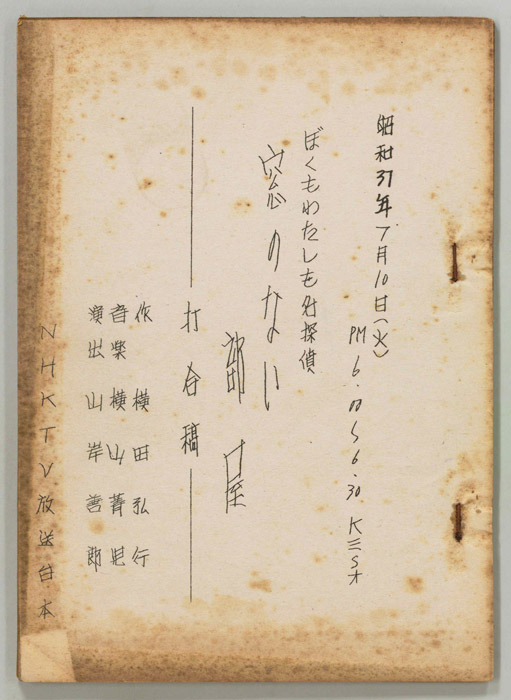 昭和37年7月10日(火)
PM 6.05〜6.30
ぼくもわたしも名探偵
窓のない
部屋
打合稿
作 横田弘行
音楽 横山菁児
演出 山岸善郎
NHKTV放送台本